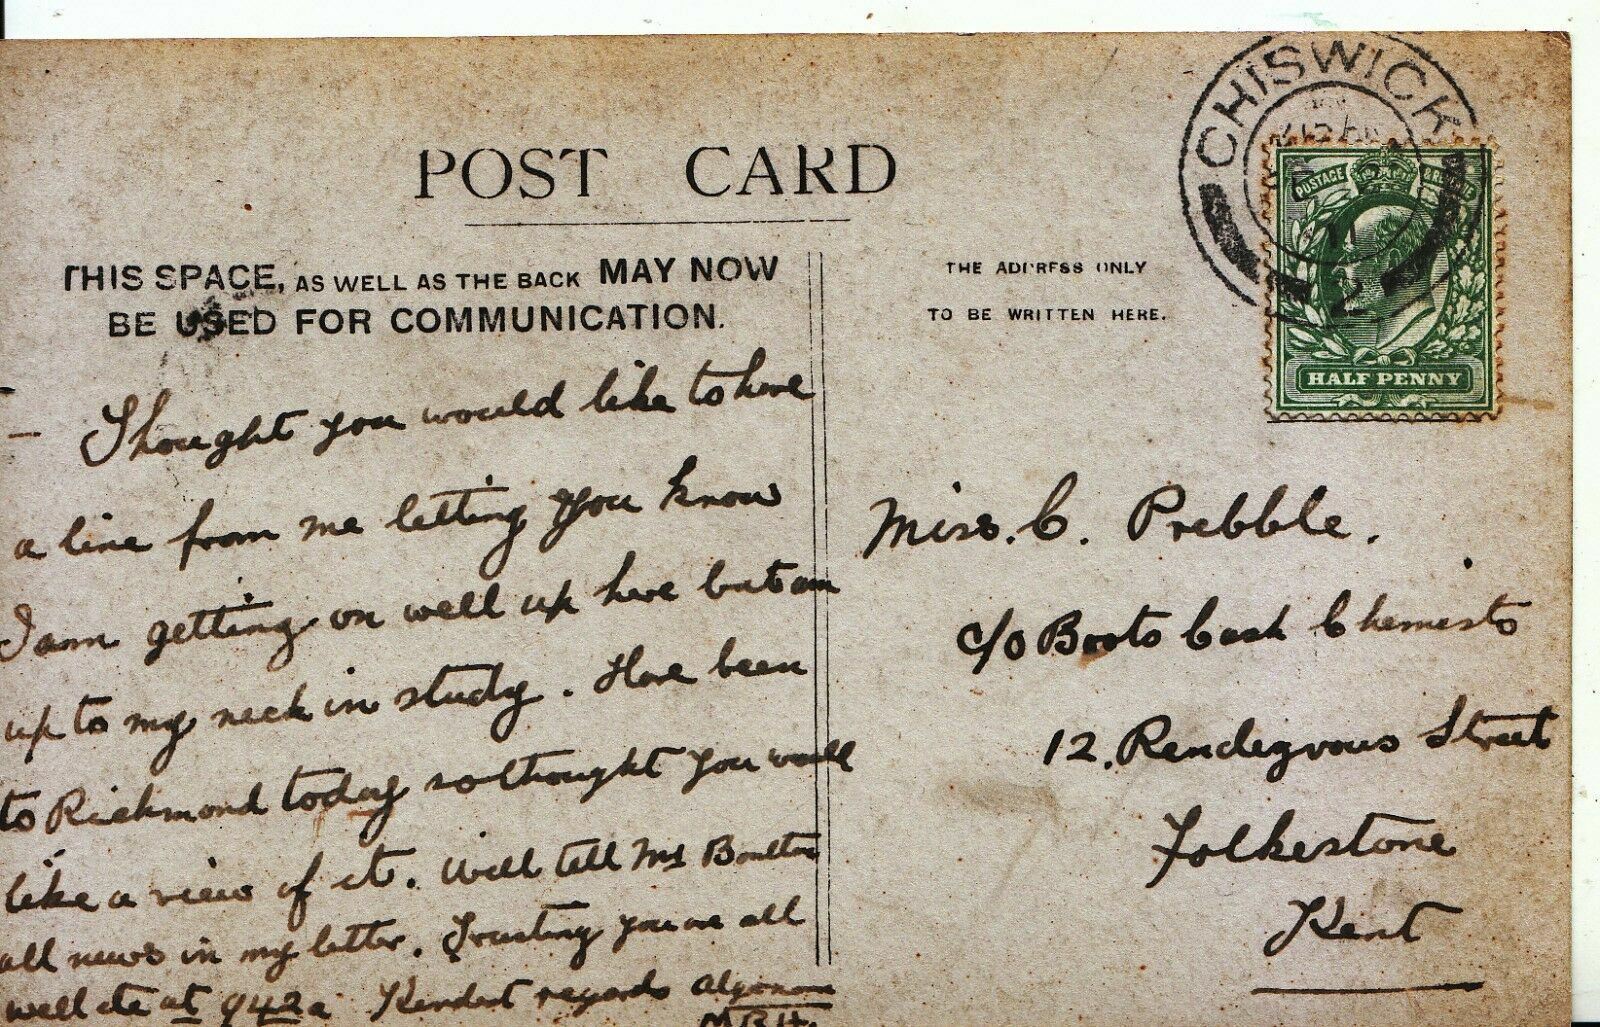 POST CARD
THIS SPACE, AS WELL AS THE BACK MAY NOW
BE USED FOR COMMUNICATION.
Thought you would like to have
a line from me letting you know
I am getting on well up here but am
up to my neck in study. Have been
to Richmond today so thought you would
like a view of it. Will tell Mr Boulton
all news in my letter. Trusting you are all
well etc at 942a Kindest regards
M.B.H.
THE ADDRESS ONLY
TO BE WRITTEN HERE.
CHISWICK
POSTAGE
HALF PENNY
Miss. C. Prebble.
c/o Boots Cash Chemists
12. Rendezvous Street
Folkestone
Kent